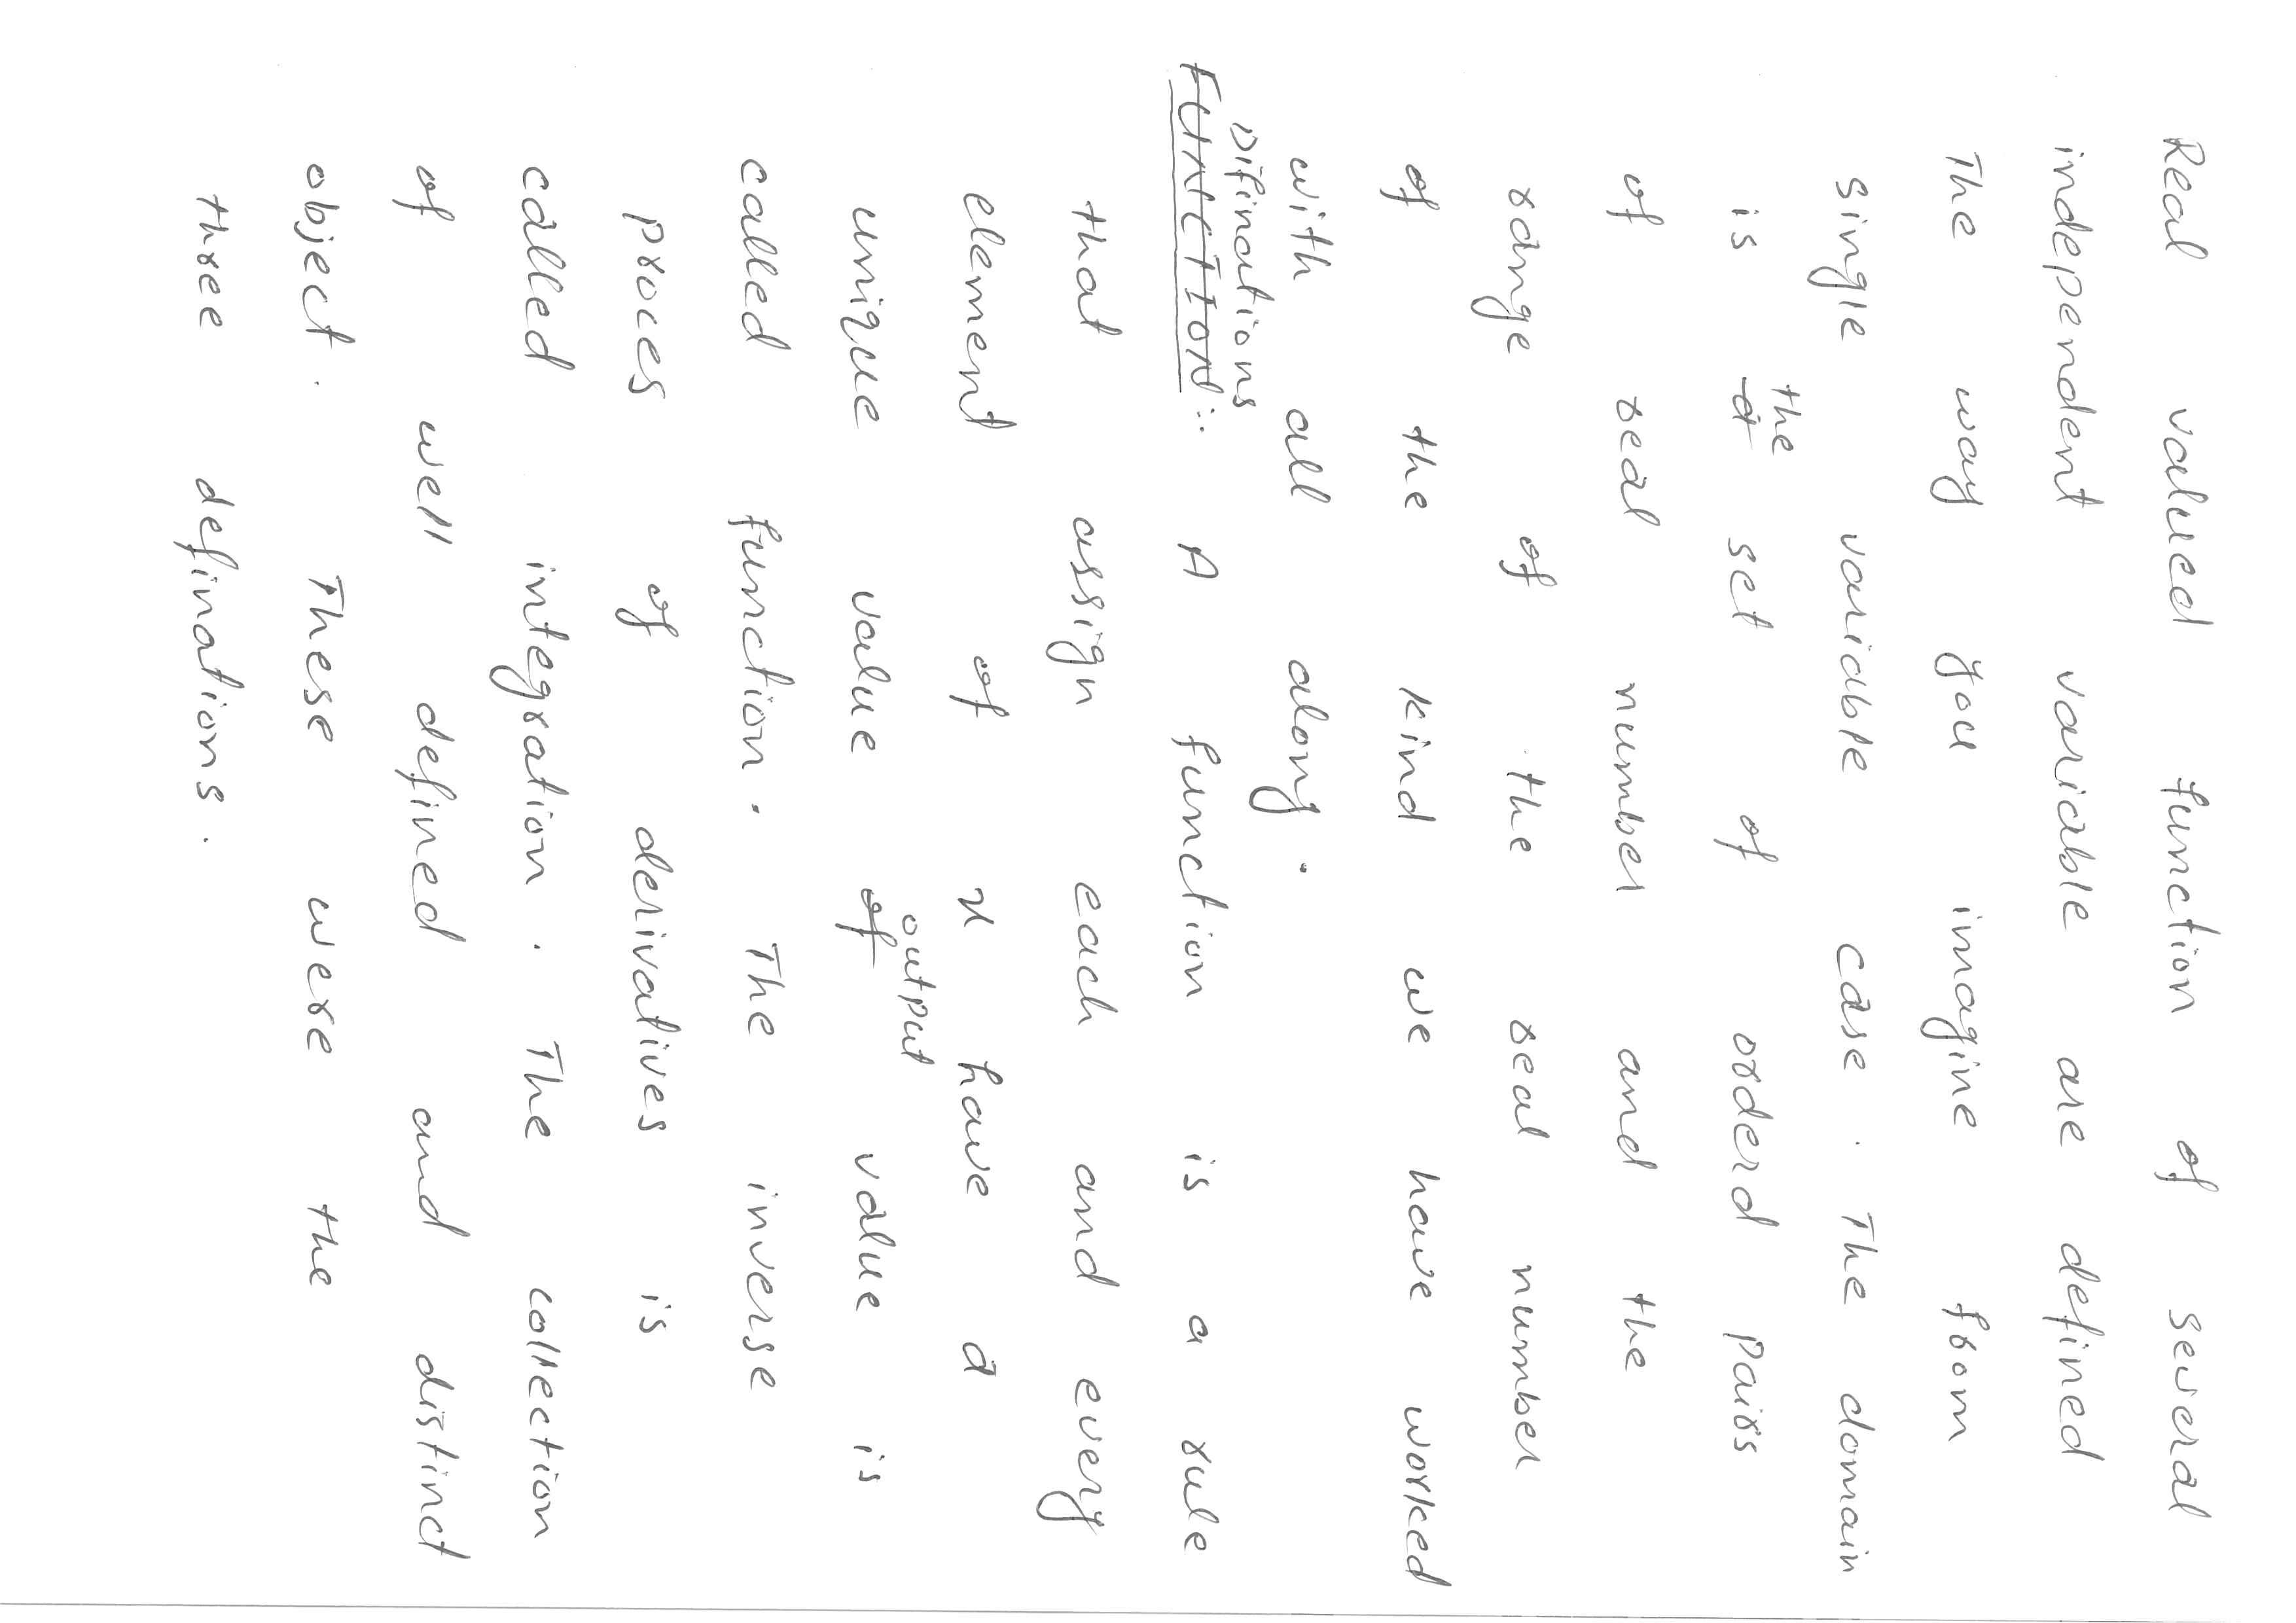 Real valued function of several
independent variable are defined
The way you imagine from
single variable case. The domain
is the set of orderd pairs
of real number and the
range of the real number
of the kind we have worked
with all along.
Difinations
FUNCTION:. A function is a rule
that assign each and every
element of x have a
unique value output value is
called function. The inverse
proces of derivatives is
called integration. The collection
of well defined and distinct
object. These were the
three definations.